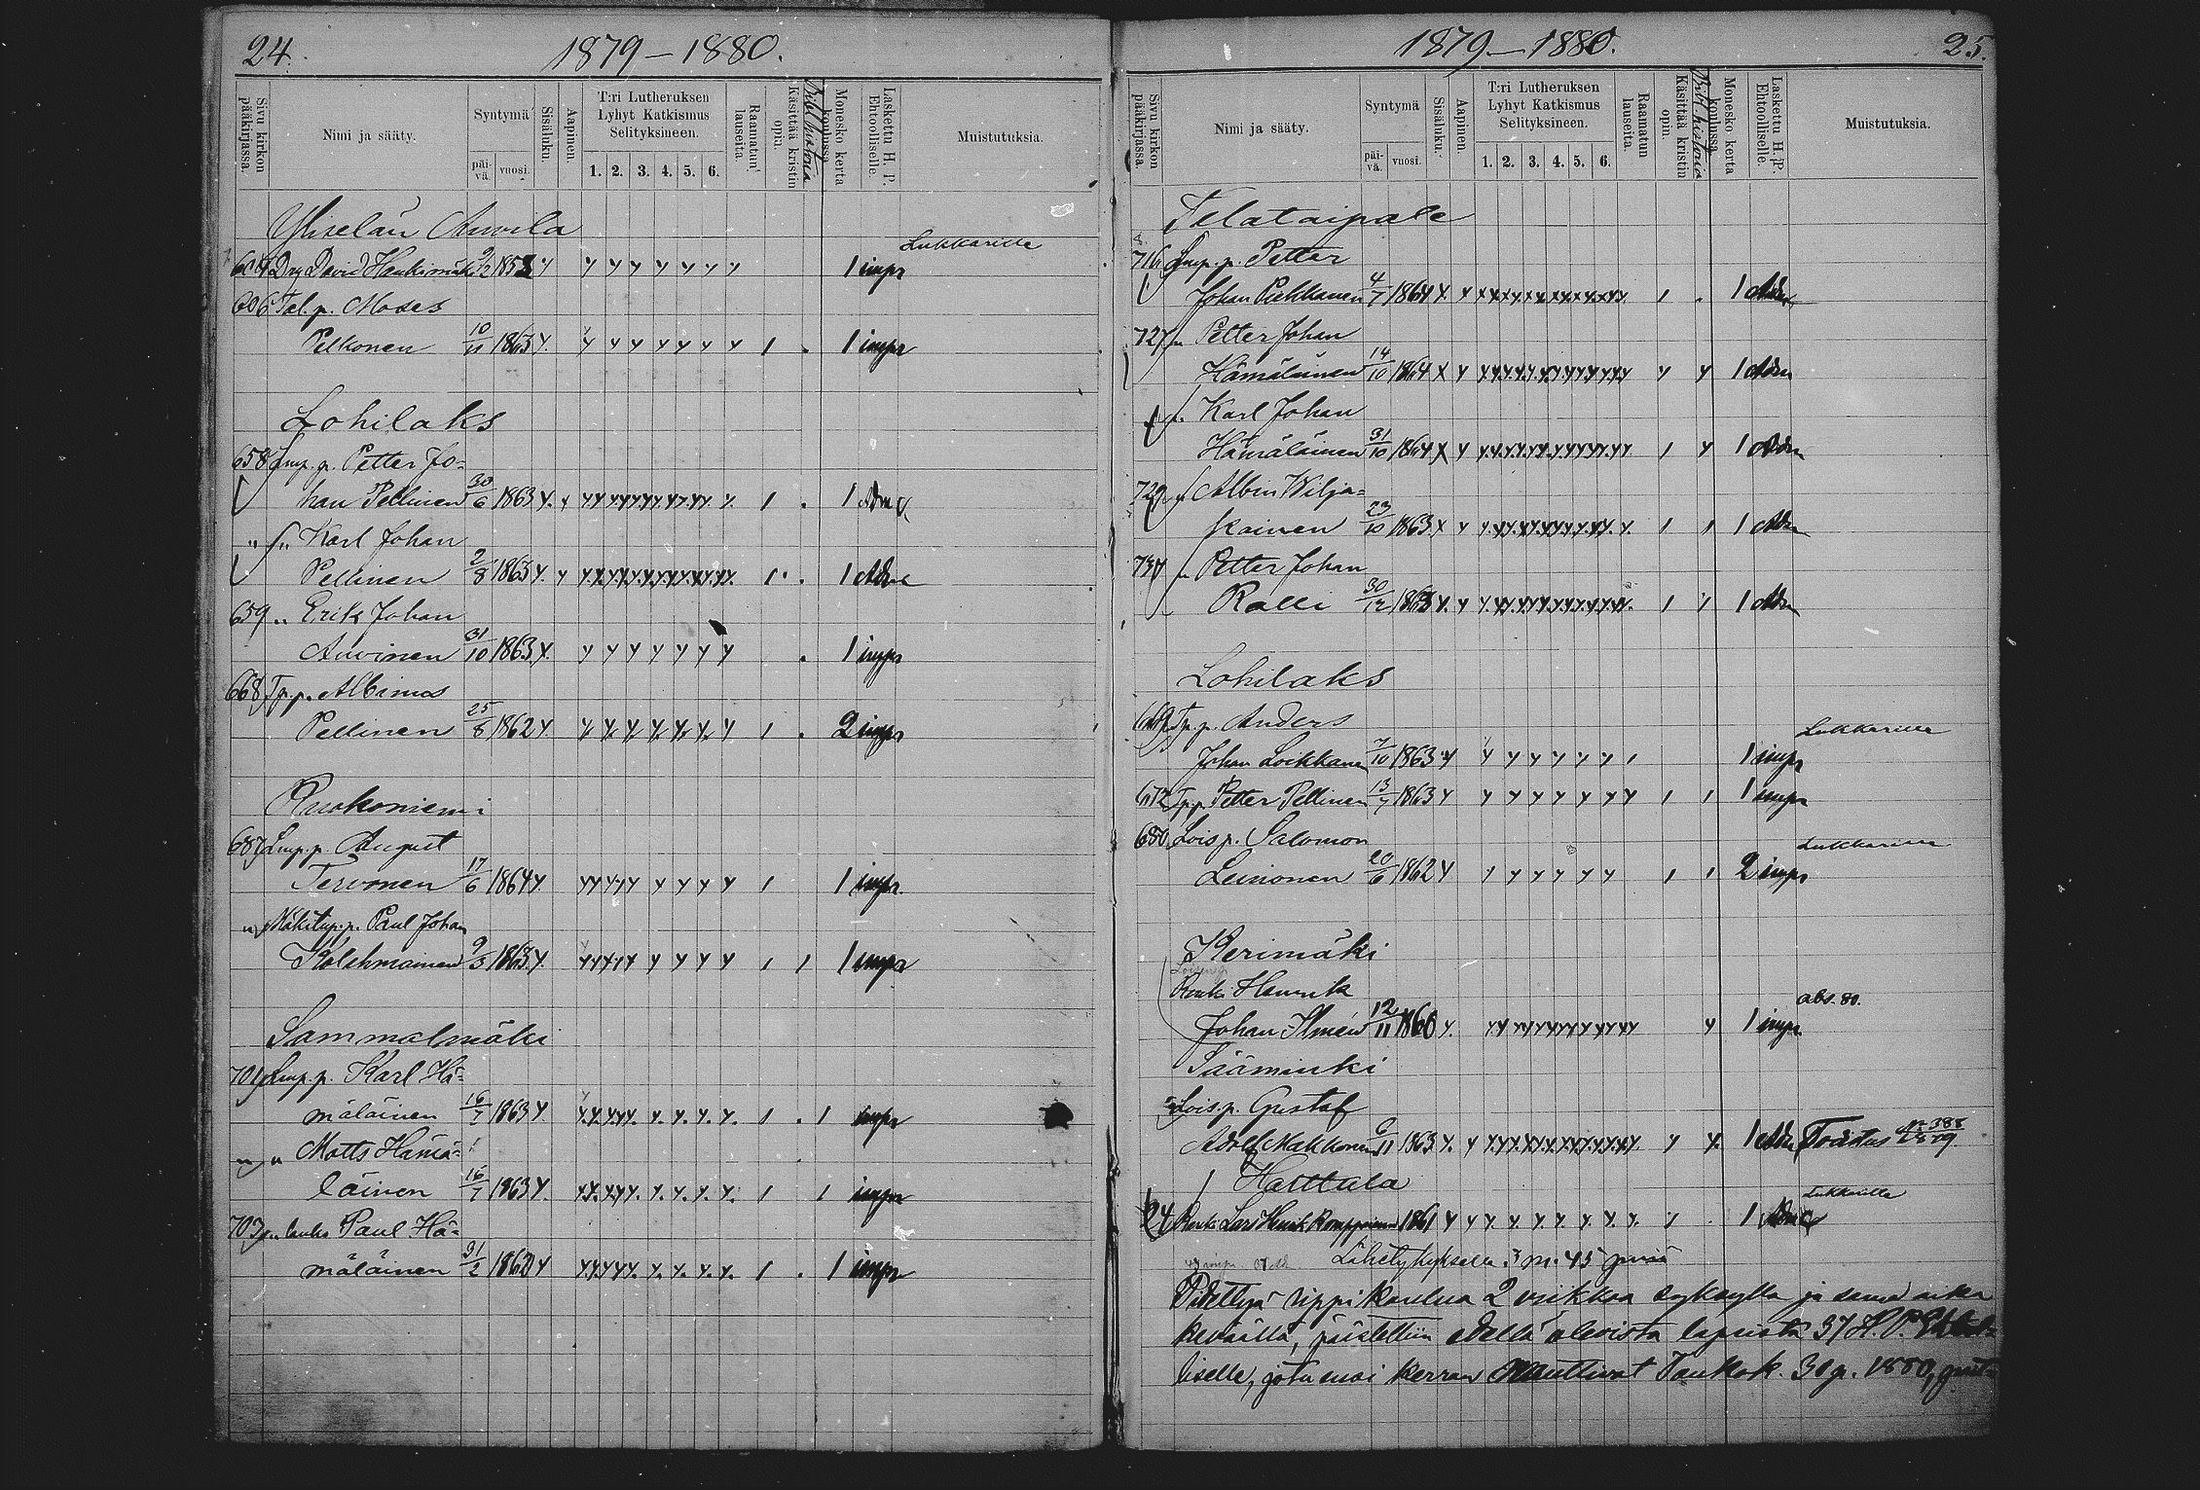 24.
1879–1880.
Sivu kirkon pääkirjassa.
Nimi ja sääty.
Syntymä
päi-vä.
vuosi.
Sisäluku.
Aapinen.
T:ri Lutheruksen
Lyhyt Katkismus
Selityksineen.
1. 2. 3. 4. 5. 6.
Raamatun lauseita.
Käsittää kristin opin.
Bibl. historia
Monesko kerta koulussa.
Laskettu H. P. Ehtoolliselle.
Muistutuksia.
Auvila
Lukkarille
604 David Haukimäki 9/2 1853 y y y y y y y y 1 impr
606 Tal.p. Moses
Pelkonen 10/11 1863 y. y y y y y y y 1 . 1 impr
Lohilaks
658 Lmp. p. Petter Jo=
han Pellinen 30/6 1863 y. 1 . 1 Adm
" " Karl Johan
Pellinen 2/8 1863 y. y 1 . 1 Adm
659 " Erik Johan
Auvinen 31/10 1863 y. y y y y y y y . 1 impr
668 Tp.p. Albinus
Pellinen 25/8 1862 y. y y y y y y y 1 . 2 impr
Ruokoniemi
687 Lmp.p. August
Tervonen 17/6 1864 y. 1 1 impr.
" Mäkitup.p. Paul Johan
Kolehmainen 9/3 1863 y. 1 1 1 impr
Sammalmäki
701 Lmp.p. Karl Hä=
mäläinen 16/7 1863 y 1 . 1 impr
" " Matts Hämä=
läinen 16/7 1863 y. 1 1 impr
703 Paul Hä=
mäläinen 1 . 1 impr
1879–1880.
25.
Sivu kirkon pääkirjassa.
Nimi ja sääty.
Syntymä
päi-vä.
vuosi.
Sisäluku.
Aapinen.
T:ri Lutheruksen
Lyhyt Katkismus
Selityksineen.
1. 2. 3. 4. 5. 6.
Raamatun lauseita.
Käsittää kristin opin.
Bibl. historia
Monesko kerta koulussa.
Laskettu H. P. Ehtoolliselle.
Muistutuksia.
Telataipale
716 Lmp. p. Petter
Johan Piekkanen 4/7 1864 y. 1 . 1 Adm
727 " Petter Johan
Hämäläinen 14/10 1864 y y y y 1 Adm
" Karl Johan
Hämäläinen 31/10 1864 y y 1 y 1 Adm
729 " Albin Wilja=
kainen 23/10 1863 y y 1 1 1 Adm
" Petter Johan
Ralli 30/12 1863 y. y 1 y 1 Adm
Lohilaks
Tp.p. Anders
Lukkarille
Johan Loikkanen 7/10 1863 y y y y y y y 1 1 impr
672 Tp.p. Petter Pellinen 13/7 1863 y y y y y y y y 1 1 1 impr
680 Lois p. Salomon
Lukkarille
Leinonen 20/6 1862 y 1 y y y y y 1 1 2 impr
Kerimäki
Renki Henrik
abs. 80.
Johan Ilmén 12/11 1860 y. y 1 impr
Sääminki
Lois.p. Gustaf
Adolf Makkonen 6/11 1863 y. y y y. 1 Adm Todistus No 388
Harttula
Lukkarille
Renki Lars Henrik Romppainen 1861 y y y. y. y. y. y. y. y. y . 1 Adm
3 m. 45 p:niä
Pidettyä rippikoulua 2 viikkoa syksyllä ja sama aika
keväällä, päästettiin edellä olevista lapsista 37 H. P. Ehtool=
liselle, jota ensi kerran nauttivat Toukok. 30 p. 1880,